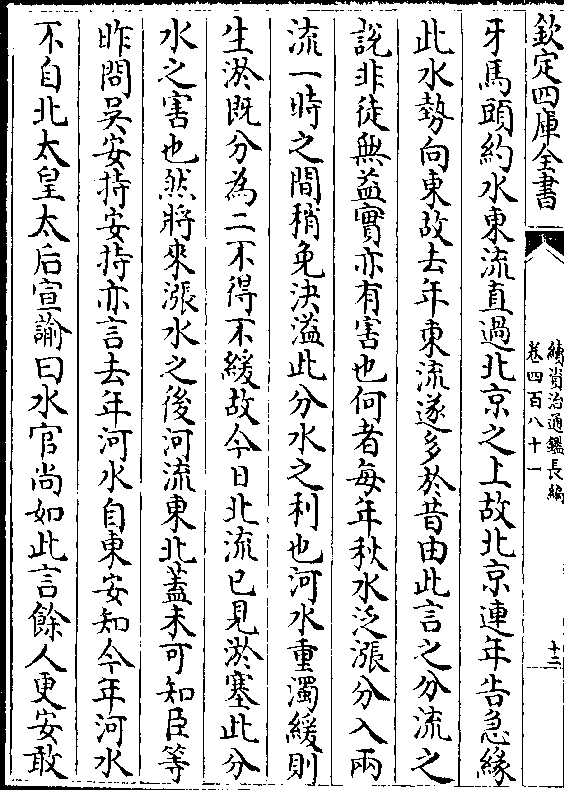 欽定四庫全書
續資治通鑑長編
卷四百八十一
十三
牙馬頭約水東流直過北京之上故北京連年告急緣
此水勢向東故去年東流遂多於昔由此言之分流之
說非徒無益實亦有害也何者每年秋水泛漲分入兩
流一時之間稍免決溢此分水之利也河水重濁緩則
生淤既分為二不得不緩故今日北流已見淤塞此分
水之害也然將來漲水之後河流東北蓋未可知臣等
昨問吳安持安持亦言去年河水自東安知今年河水
不自北太皇太后宣諭曰水官尚如此言餘人更安敢